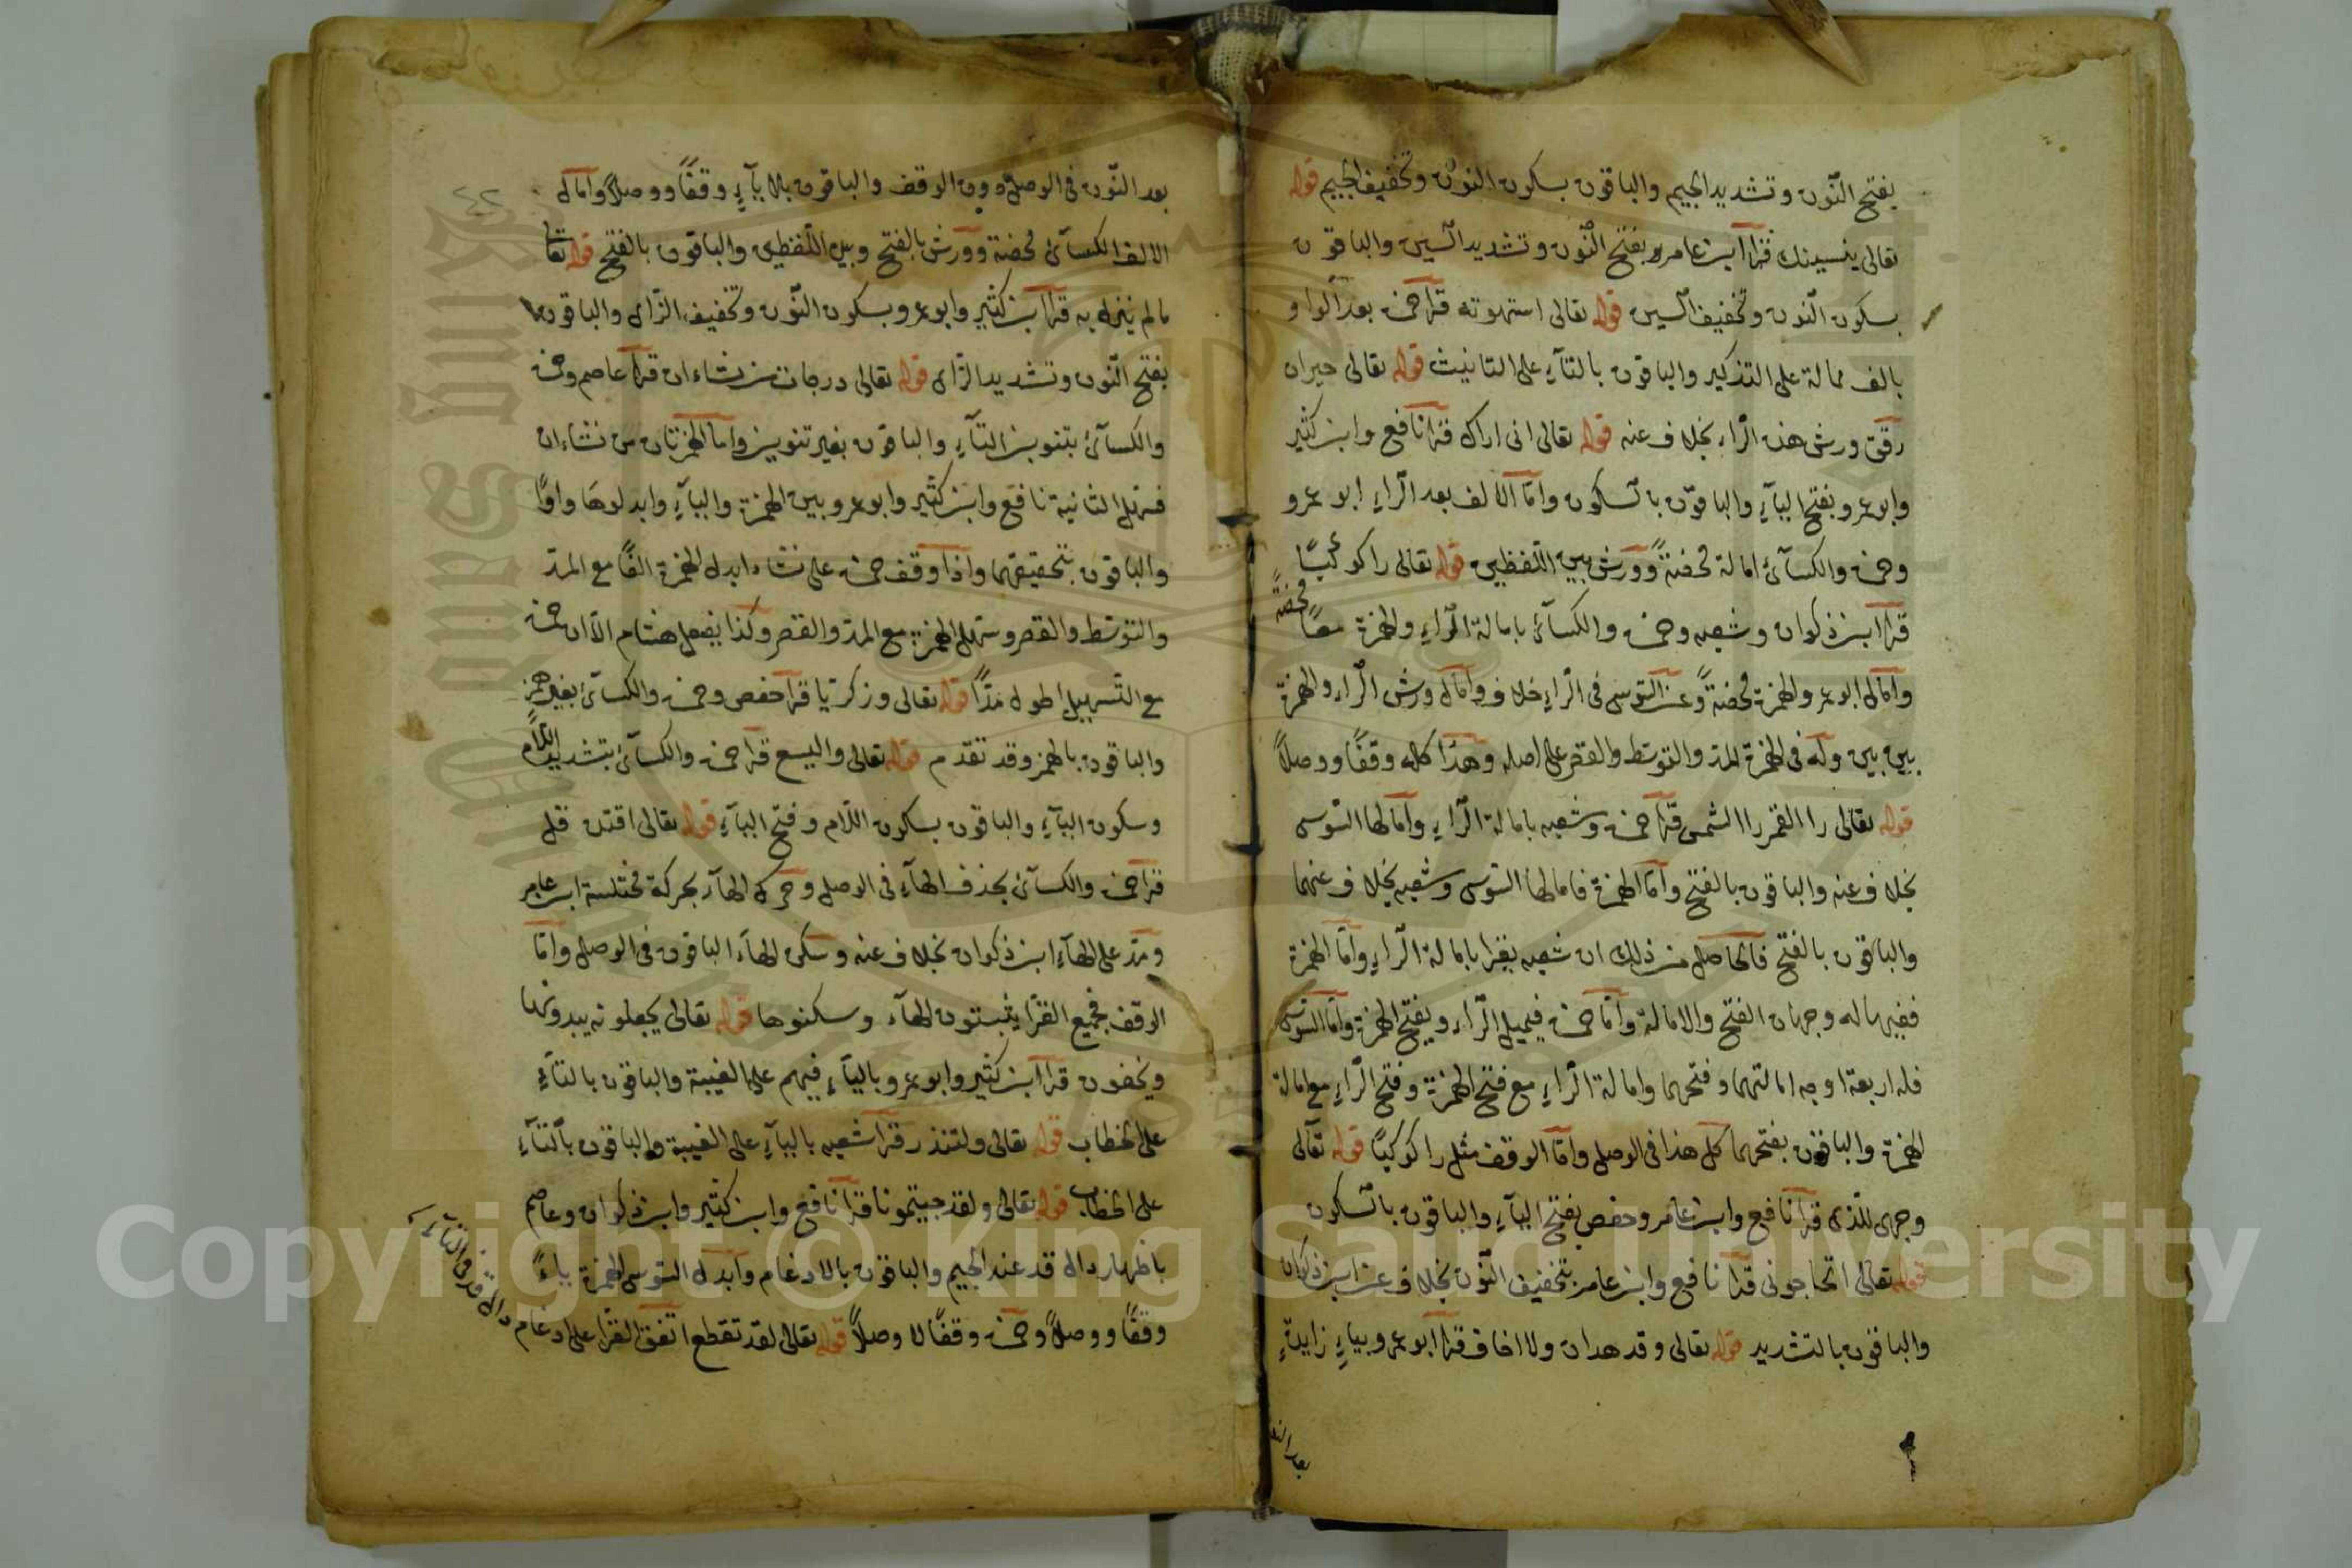 بفتح النّون وتشديد الجيم والباقون بسكون النون وتخفيف الجيم قوله
تعالى ينسينك قرا ابن عامر بفتح النّون وتشديد السّين والباقون
بسكون النون وتخفيف السّين قوله تعالى استهوته قرا حمزه بعد الواو
بالف ممالة على التذكير والباقون بالتآءِ على التانيث قوله تعالى حيران
رقق ورش هذه الرّاء بخلاف عنه قوله تعالى انى اراك قرا نافع وابن كثير
وابو عمرو بفتح اليآءِ والباقون بالسّكون وامّا الالف بعد الرّاءِ ابو عمرو
وحمزه والكسآئ امالة محضةً وورش بين اللّفظين قوله تعالى را كوكبًا
قرا ابن ذكوان وشعبه وحمزه والكسآئ بامالة الرّاءِ والهمزة معًا محضةً
وامال ابو عمرو الهمزة محضةً وعن السّوسى فى الرّاءِ خلاف وامال ورش الرّاء والهمزة
بين بين وله فى الهمزة المد والتوسّط والقصر على اصله وهذا كله وقفًا ووصلاً
قوله تعالى را القمر را الشمس قرا حمزه وشعبه بامالة الرّاءِ وامالها السّوسى
بخلاف عنه والباقون بالفتح وامّا الهمزة فامالها السّوسى وشعبه بخلاف عنهما
والباقون بالفتح فالحاصل من ذلك ان شعبه يقرا بامالة الرّاءِ وامّا الهمزة
ففيها له وجهان الفتح والامالة وامّا حمزه فيميل الرّاء ويفتح الهمزة وامّا السّوسى
فله اربعة اوجه امالتهما وفتحهما وامالة الرّاءِ مع فتح الهمزة وفتح الرّاءِ مع امالة
الهمزة والباقون بفتحهما كل هذا فى الوصل وامّا الوقف مثل را كوكبًا قوله تعالى
وجهى للذى قرا نافع وابن عامر وحفص بفتح اليآءِ والباقون بالسّكون
قوله تعالى اتحاجونى قرا نافع وابن عامر بتخفيف النّون بخلاف عن ابن ذكوان
والباقون بالتشديد قوله تعالى وقد هدان ولا اخاف قرا ابو عمرو بياءِ زايدةٍ
بعد النّون فى الوصل دون الوقف والباقون بلا يآءٍ وقفًا ووصلاً وامال
الالف الكسآئ محضة وورش بالفتح وبين اللّفظين والباقون بالفتح قوله تعالى
ما لم ينزل به قرا ابن كثير وابو عمرو بسكون النّون وتخفيف الزّاى والباقون
بفتح النّون وتشديد الزّاى قوله تعالى درجات من نشاء ان قرا عاصم وحمزه
والكسآئ بتنوين التآءِ والباقون بغير تنوين وامّا الهمزتان من نشاء ان
فسهل الثانية نافع وابن كثير وابو عمرو بين الهمزة واليآءِ وابدلوها واوًا
والباقون بتحقيقهما واذا وقف حمزه على نشاء ابدل الهمزة الفًا مع المدّ
والتوسّط والقصر وسهّل الهمزة مع المدّ والقصر وكذا يفعل هشام الّا ان حمزه
مع التّسهيل اطول مدًّا قوله تعالى وزكريّا قرا حفص وحمزه والكسآئ بغير همز
والباقون بالهمز وقد تقدم قوله تعالى واليسع قرا حمزه والكسآئ بتشديد اللّام
وسكون اليآءِ والباقون بسكون اللّام وفتح اليآءِ قوله تعالى اقتده قل
قرا حمزه والكسآئ بحذف الهآءِ فى الوصل وحرك الهآء بحركة مختلسة ابن عامر
ومدّ على الهآءِ ابن ذكوان بخلاف عنه وسكن الهآء الباقون فى الوصل وامّا
الوقف فجميع القرّا يثبتون الهآء وسكنوها قوله تعالى يجعلونه يبدونها
ويخفون قرا ابن كثير وابو عمرو باليآءِ فيهم على الغيبة والباقون بالتآءِ
على الخطاب قوله تعالى ولتنذر قرا شعبه باليآءِ على الغيبة والباقون بالتآءِ
على الخطاب قوله تعالى ولقد جيتمونا قرا نافع وابن كثير وابن ذكوان وعاصم
باظهار دال قد عند الجيم والباقون بالادغام وابدل السّوسى الهمزة ياءً
وقفًا ووصلاً وحمزه وقفًا لا وصلاً قوله تعالى لقد تقطع اتفق القرّا على ادغام
دال قد فى التآء
بعد النون